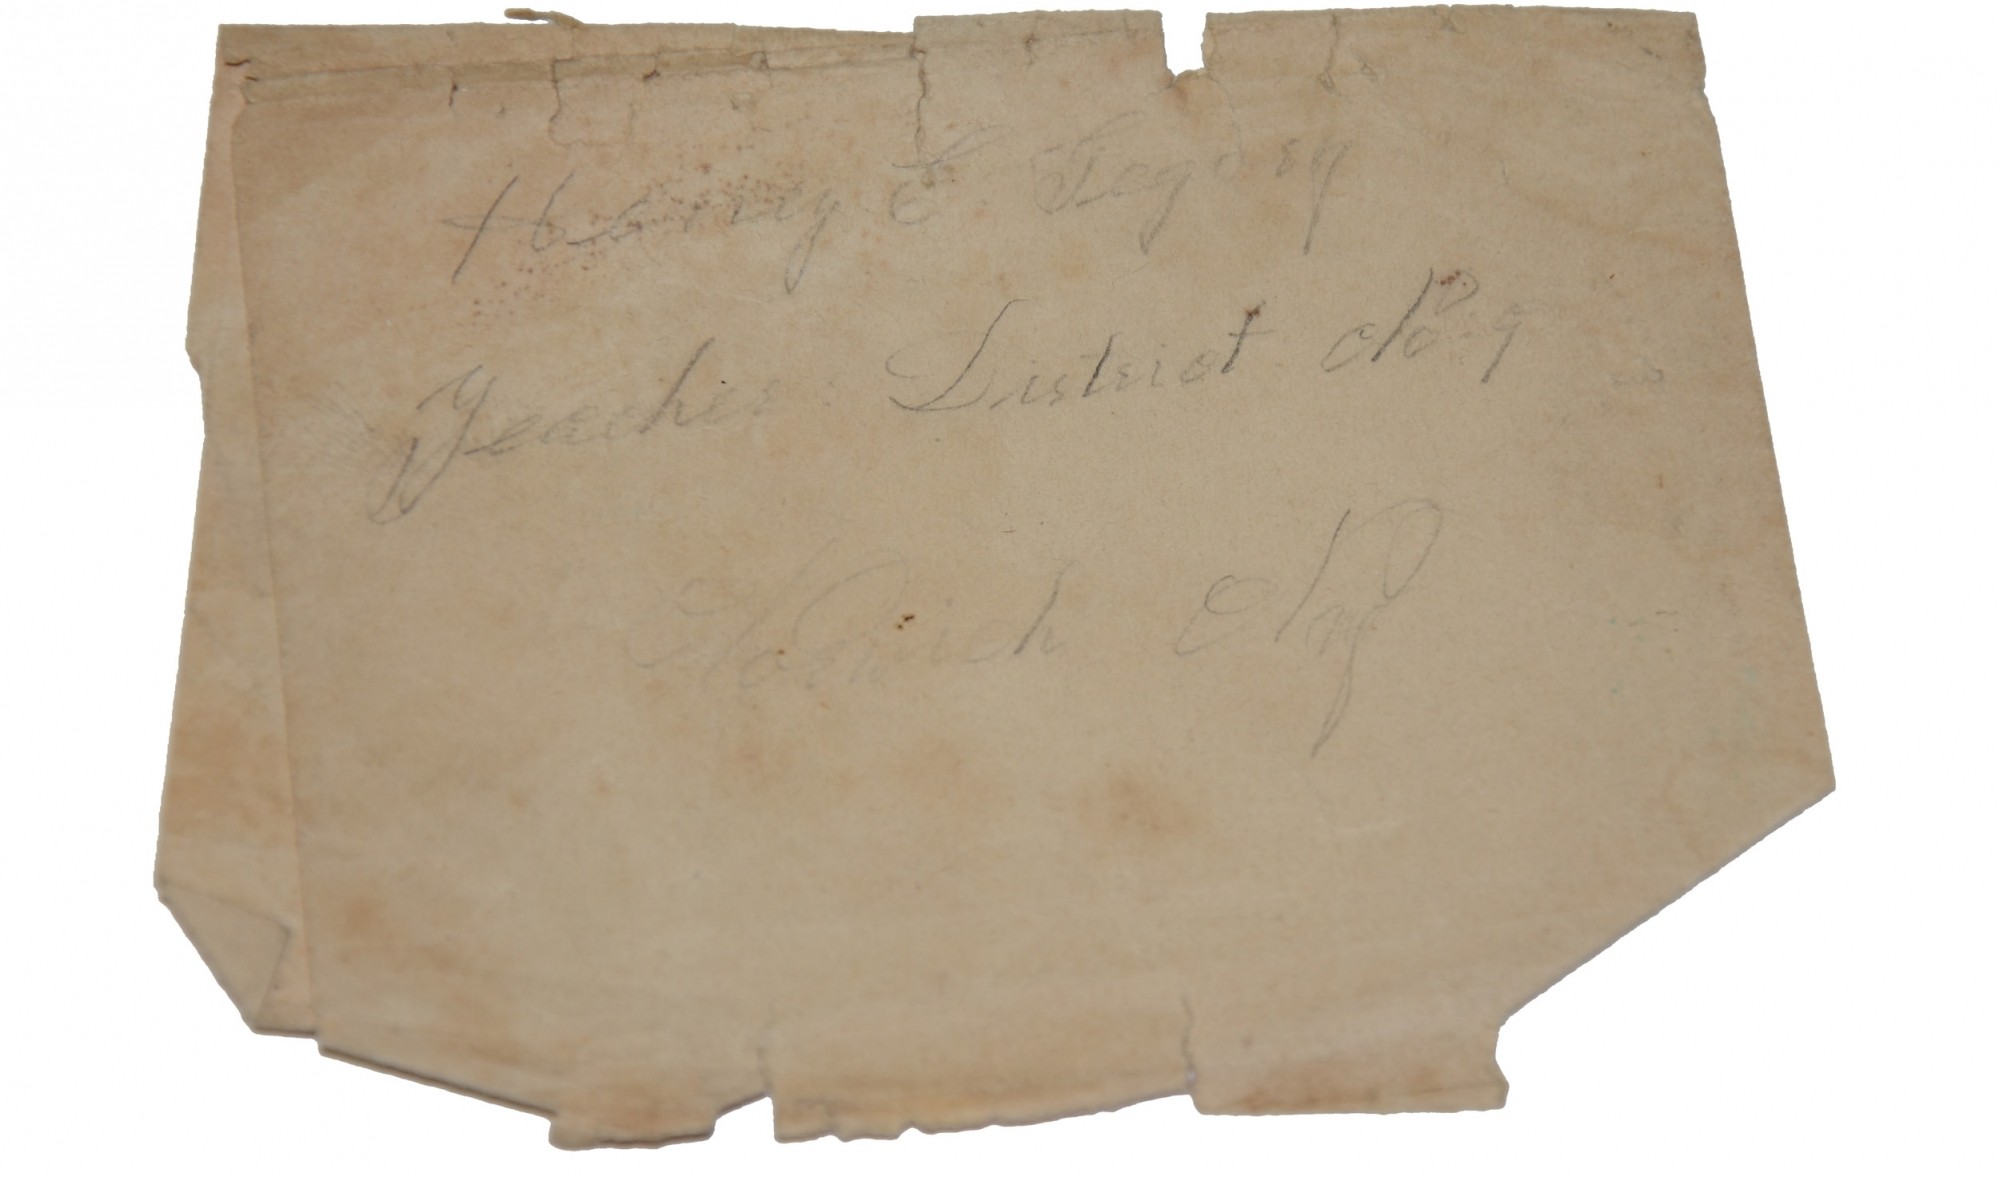 Harry E.
Teacher District No. 9
Norwich N.Y.